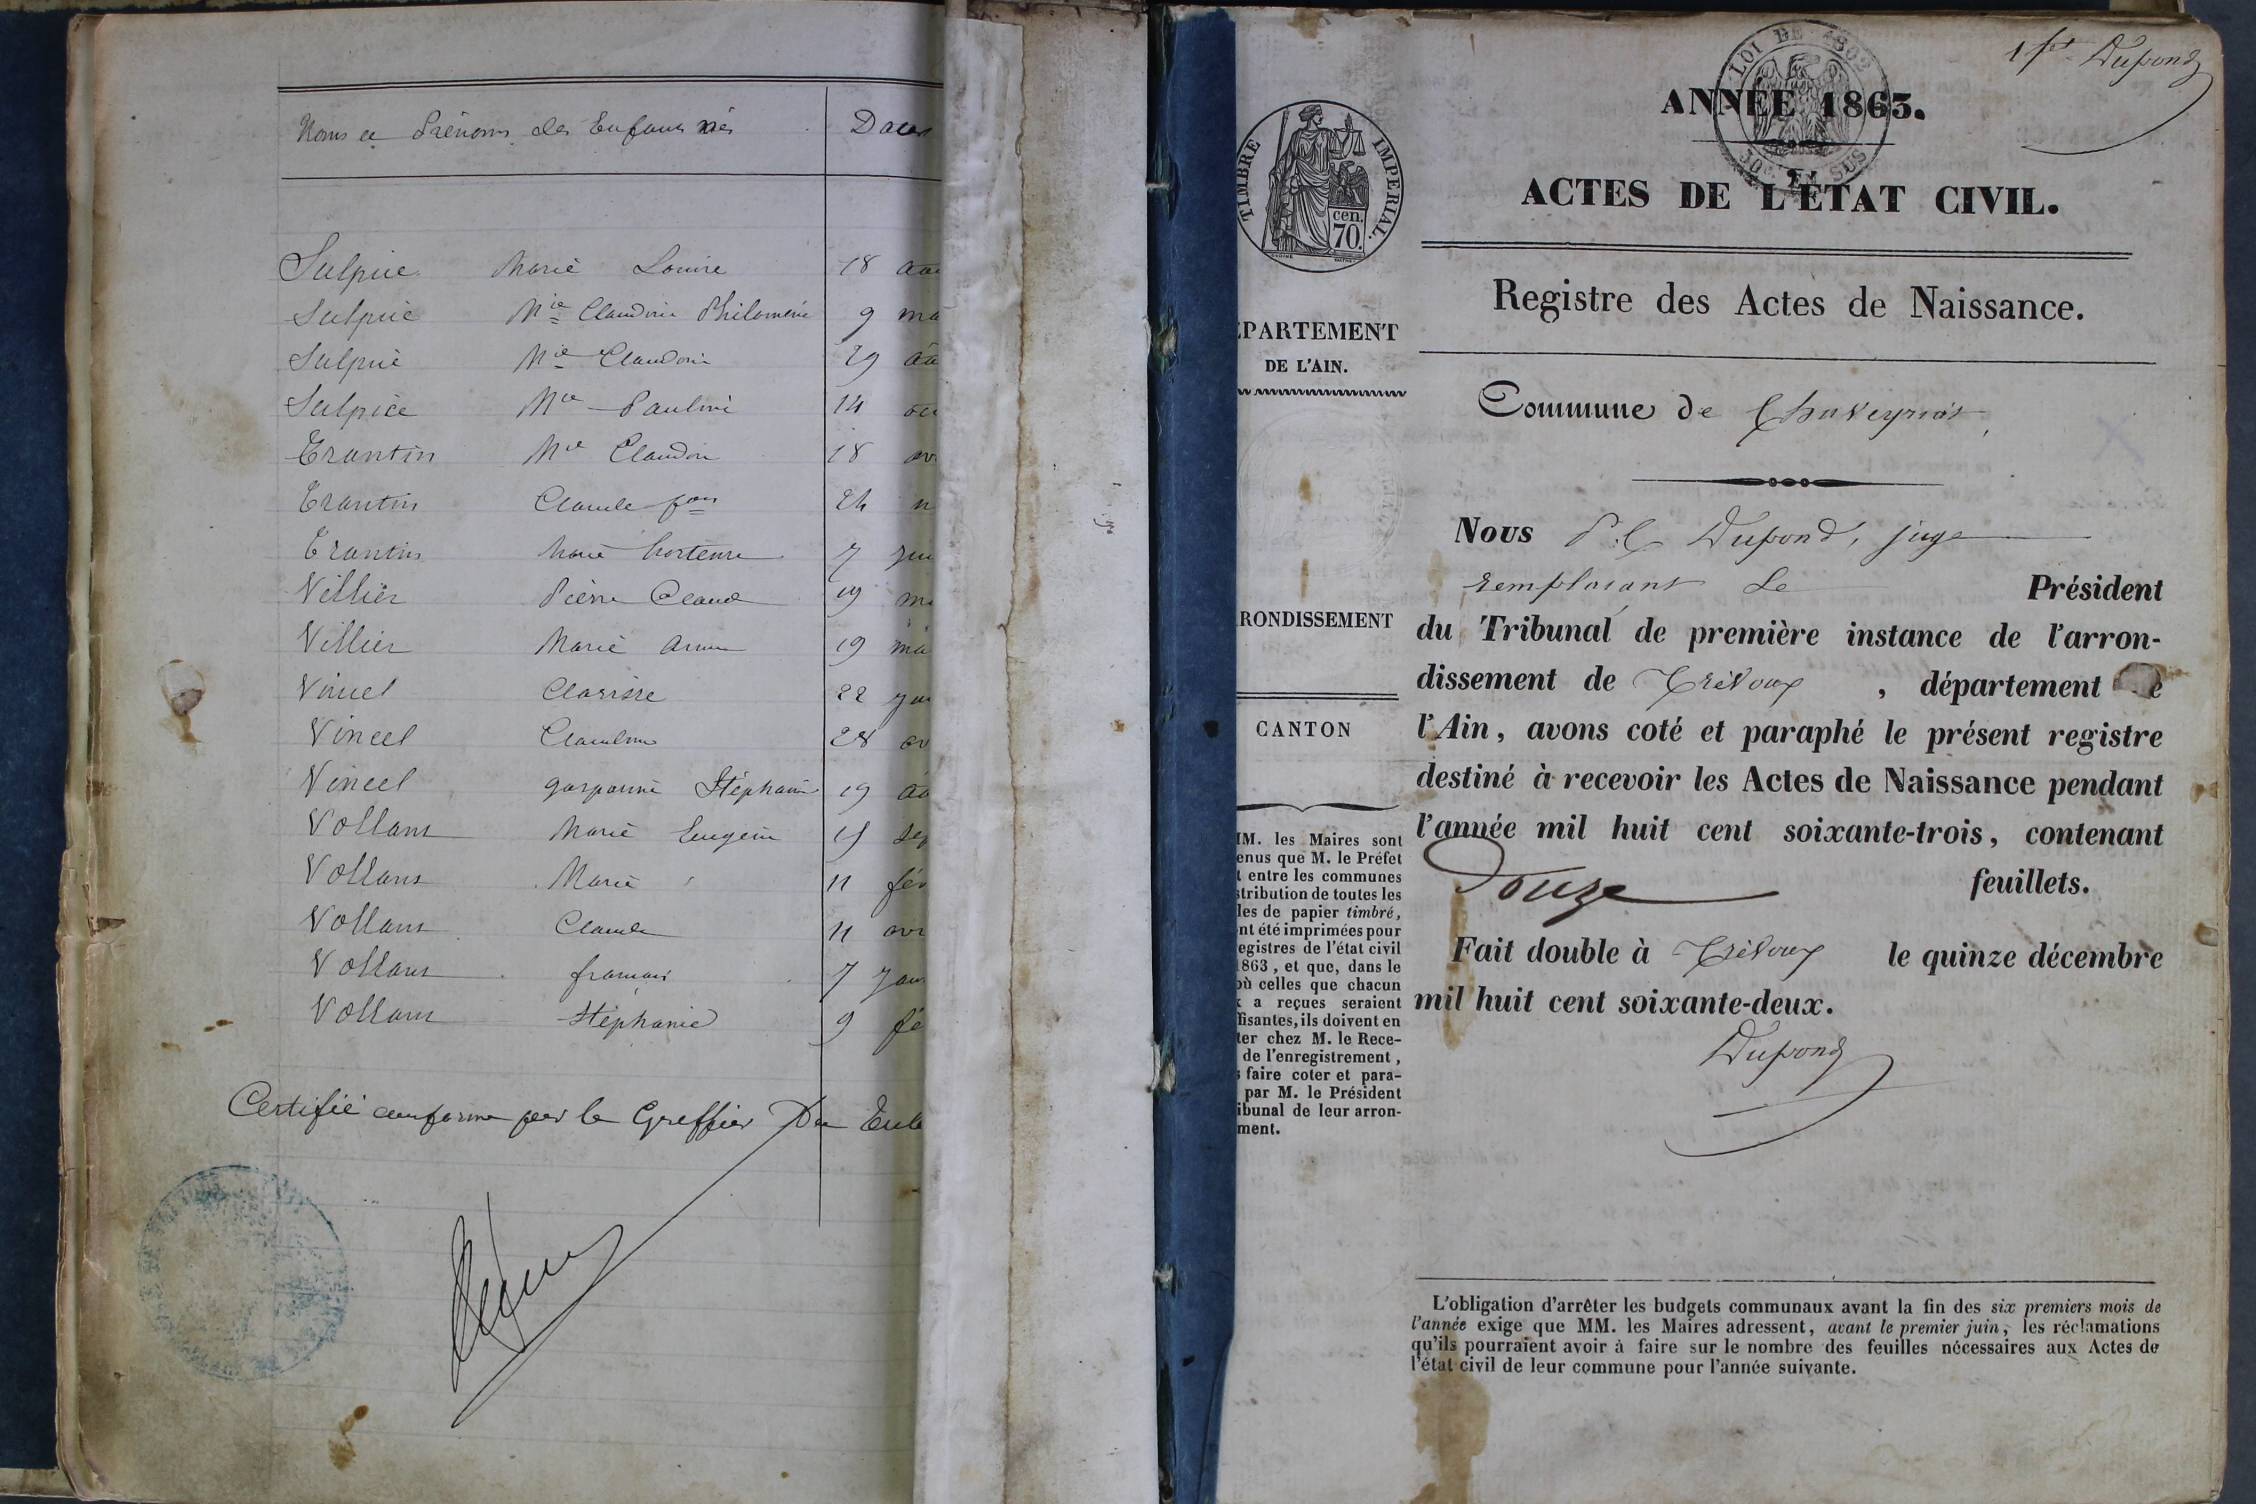 Noms et Prénoms des Enfants nés Dates
Sulpice Marie Louise 18 aoû
Sulpice Mie Claudine Philomène 9 ma
Sulpice Mie Claudine 29 aoû
Sulpice Mie Pauline 14
Trantin Mie Claudine 18 av
Trantin Claude fçois 24
Trantin Marie hortense 7 jui
Villier Pierre Claude 19 ma
Villier Marie Anne 19 ma
Vincel Clarisse 22
Vincel Claudine 28
Vincel gasparine Stéphanie 19 aoû
Vollant Marie Eugénie 15 sep
Vollans Marie 11 fév
Vollans Claude 11 avr
Vollans françois 7 jan
Vollans Stéphanie 9 fé
Certifié conforme par le Greffier
1er Dupond
LOI DE 1862
10e EN SUS
ANNÉE 1863.
ACTES DE L'ÉTAT CIVIL.
Registre des Actes de Naissance.
Commune de Chaveyriat
Nous P. C Dupond, juge
remplaçant Le Président
du Tribunal de première instance de l'arron-
dissement de Trévoux, département e
l'Ain, avons coté et paraphé le présent registre
destiné à recevoir les Actes de Naissance pendant
l'année mil huit cent soixante-trois, contenant
Douze feuillets.
Fait double à Trévoux le quinze décembre
mil huit cent soixante-deux.
Dupond
TIMBRE IMPERIAL.
cen.
70.
PARTEMENT
DE L'AIN.
RONDISSEMENT
CANTON
M. les Maires sont
enus que M. le Préfet
t entre les communes
stribution de toutes les
les de papier timbré,
nt été imprimées pour
egistres de l'état civil
1863, et que, dans le
où celles que chacun
x a reçues seraient
fisantes, ils doivent en
ter chez M. le Rece-
de l'enregistrement,
s faire coter et para-
par M. le Président
ibunal de leur arron-
ment.
L'obligation d'arrêter les budgets communaux avant la fin des six premiers mois de
l'année exige que MM. les Maires adressent, avant le premier juin, les réclamations
qu'ils pourraient avoir à faire sur le nombre des feuilles nécessaires aux Actes de
l'état civil de leur commune pour l'année suivante.